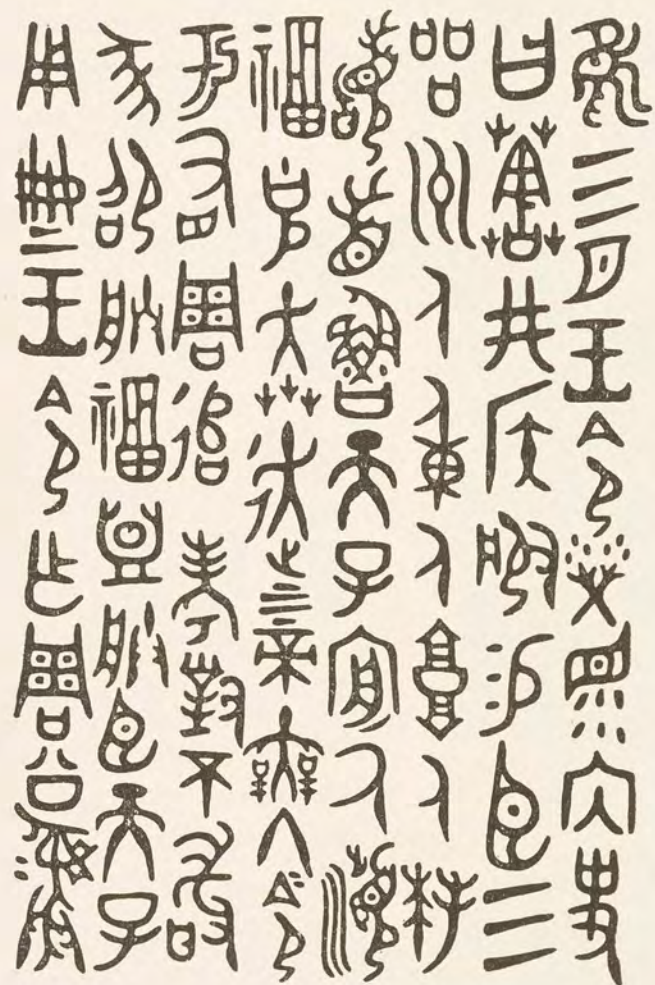 隹三月王令榮眔內史
曰𦱤井𥎦服易臣三
品州人重人𩫏人拜
𩒨首魯天子𡧛厥瀕
福克奔走上下帝無冬令
于有周追考對不敢
㒸卲朕福盟朕臣天子
用典王令乍周公彝